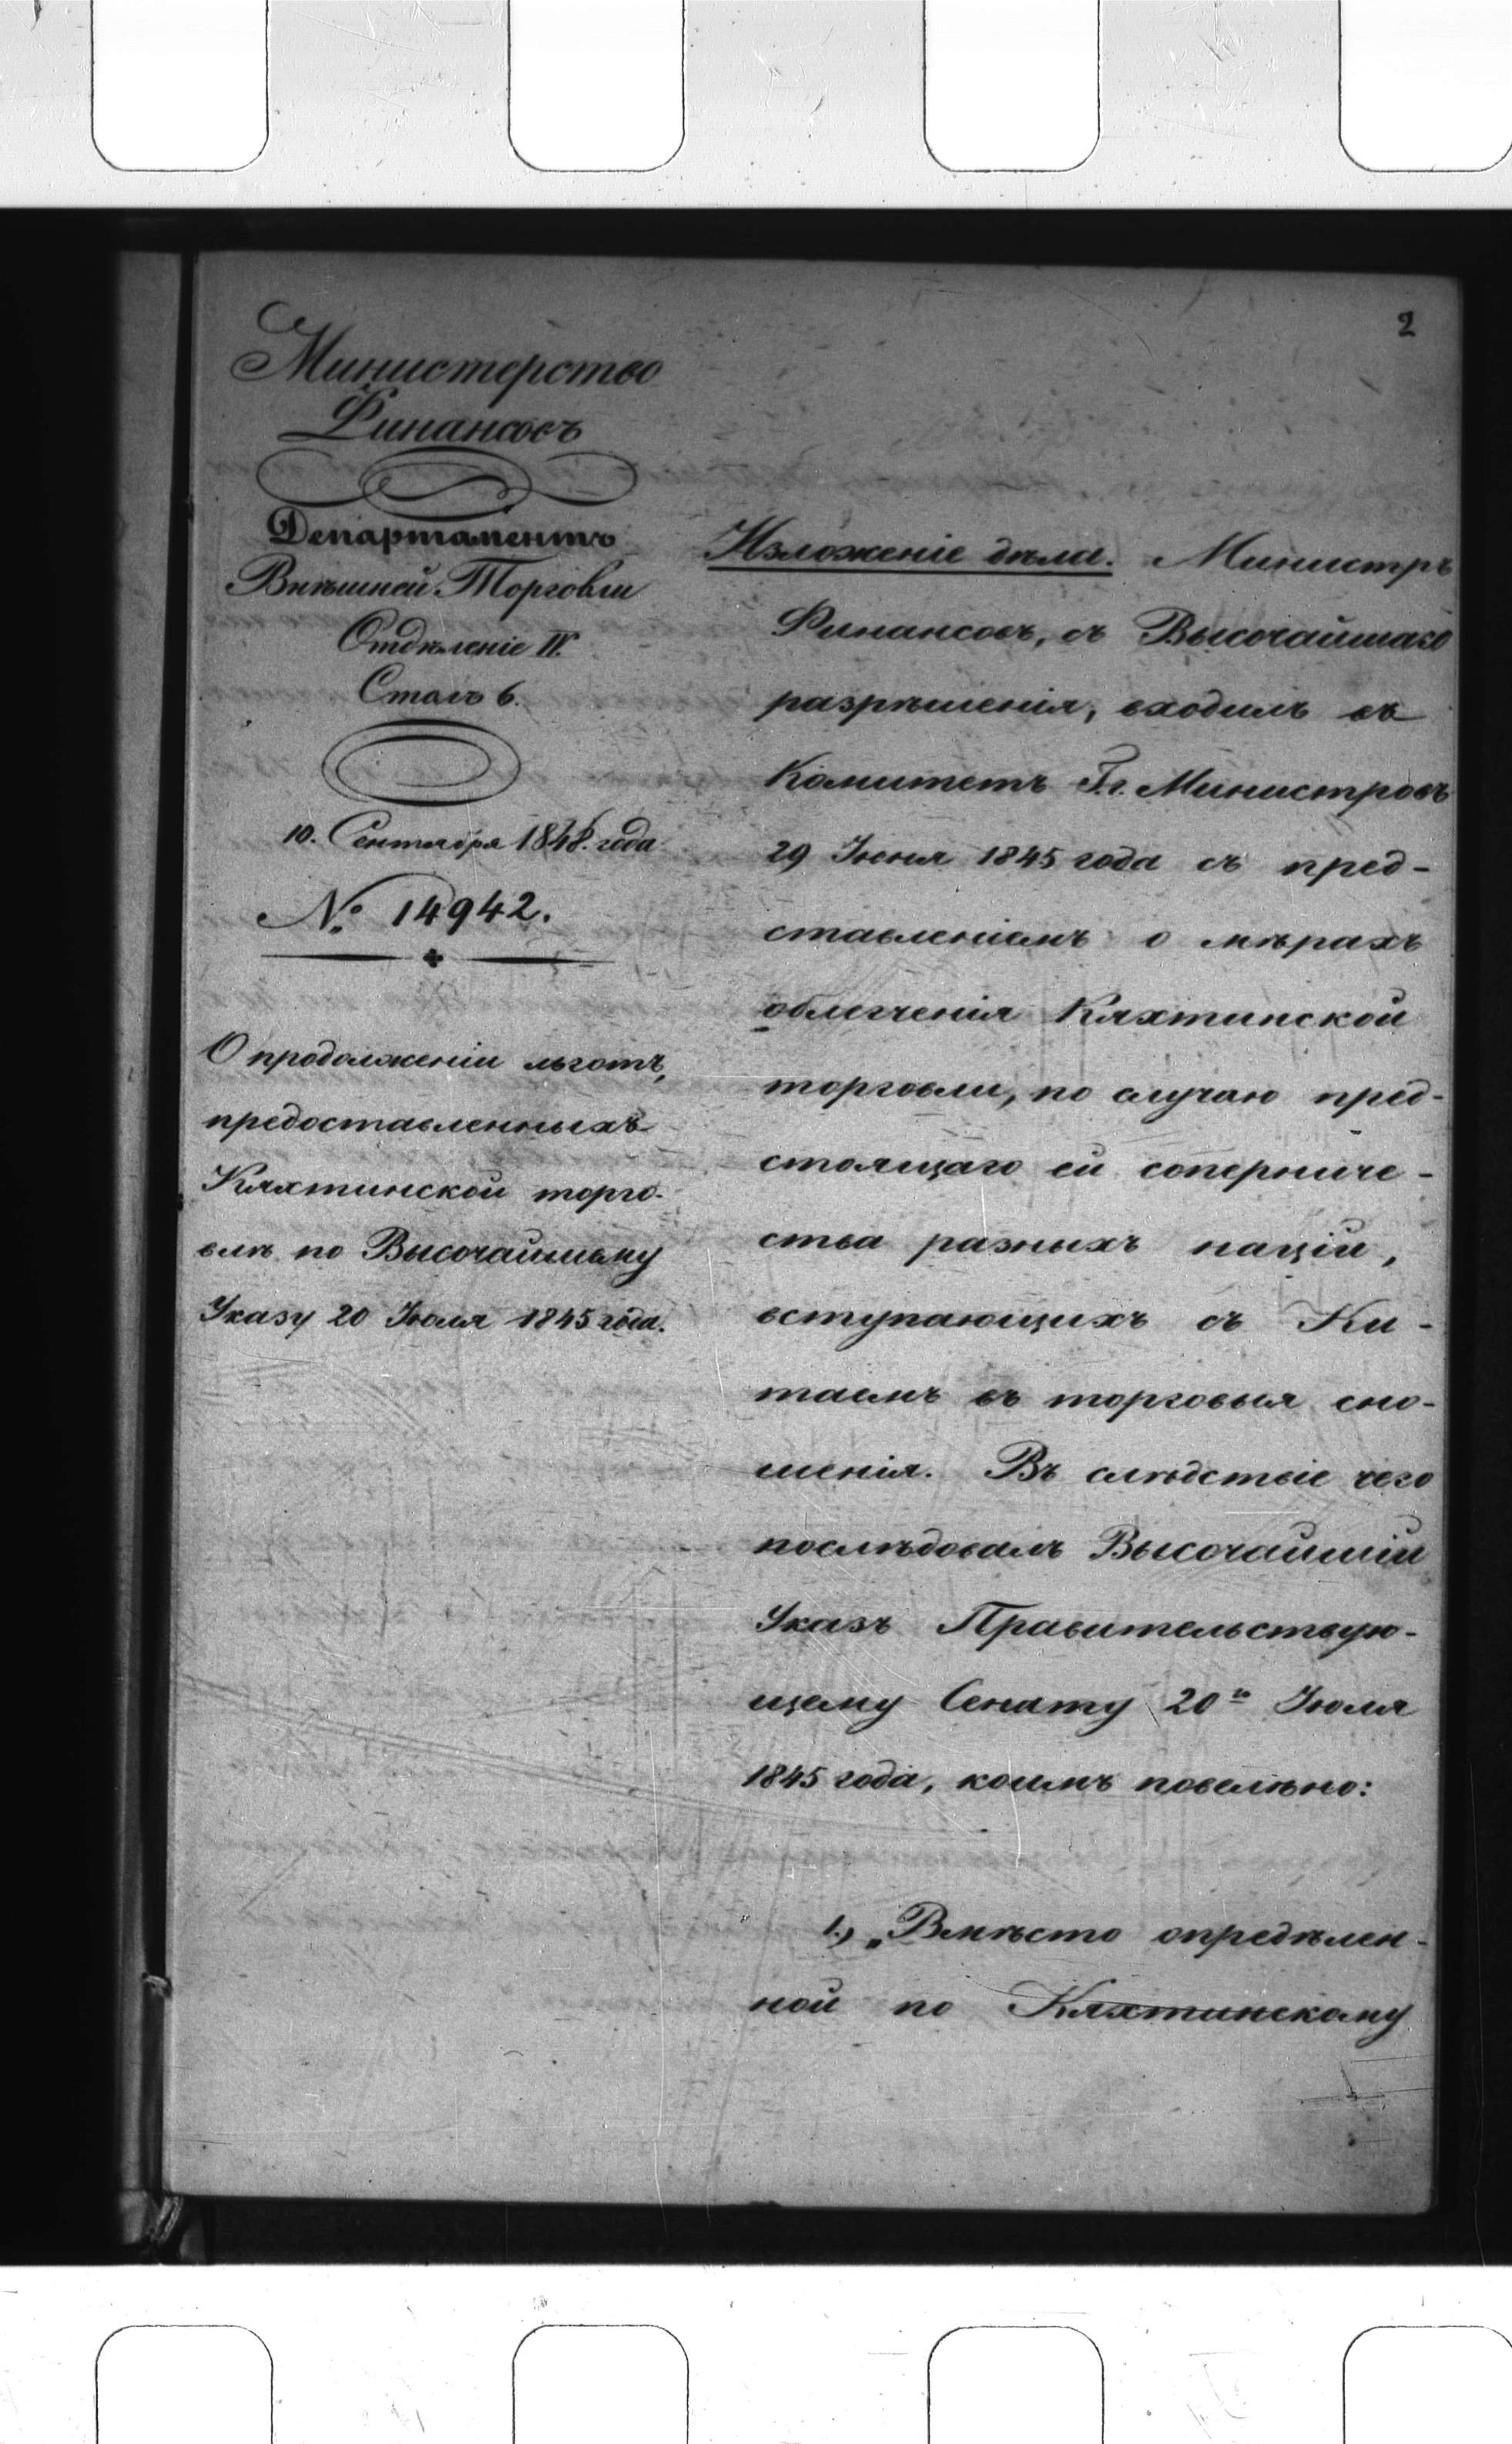 2
Министерство
Финансовъ
Департаментъ
Внѣшней Торговли
Отдѣленіе IV.
Столъ 6.
10. Сентября 1848. года
№ 14942.
О продолженіи льготъ,
предоставленныхъ
Кяхтинской торго-
влѣ по Высочайшему
Указу 20 Іюля 1845 года.
Изложеніе дѣла. Министръ
Финансовъ, съ Высочайшаго
разрѣшенія, входилъ въ
Комитетъ Г.г. Министровъ
29 Іюня 1845 года съ пред-
ставленіемъ о мѣрахъ
облегченія Кяхтинской
торговли, по случаю пред-
стоящаго ей соперниче-
ства разныхъ націй,
вступающихъ съ Ки-
таемъ въ торговыя сно-
шенія. Въ слѣдствіе чего
послѣдовалъ Высочайшій
Указъ Правительствую-
щему Сенату 20го Іюля
1845 года, коимъ повелѣно:
1.) „Вмѣсто опредѣлен-
ной по Кяхтинскому